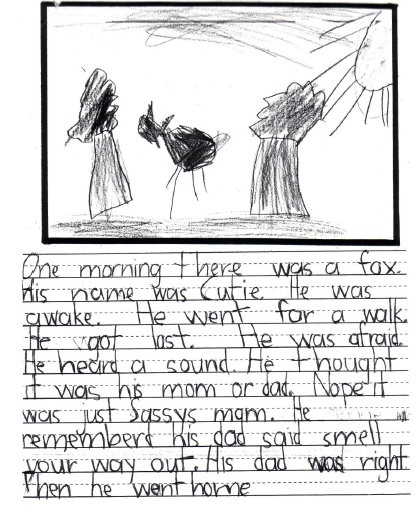 One morning there was a fox.
his name was Cutie. He was
awake. He went for a walk.
He got lost. He was afraid.
He heard a sound. He thought
it was his mom or dad. Nope it
was just Sassys mom. He
rememberd his dad said smell
your way out. His dad was right
Then he went home